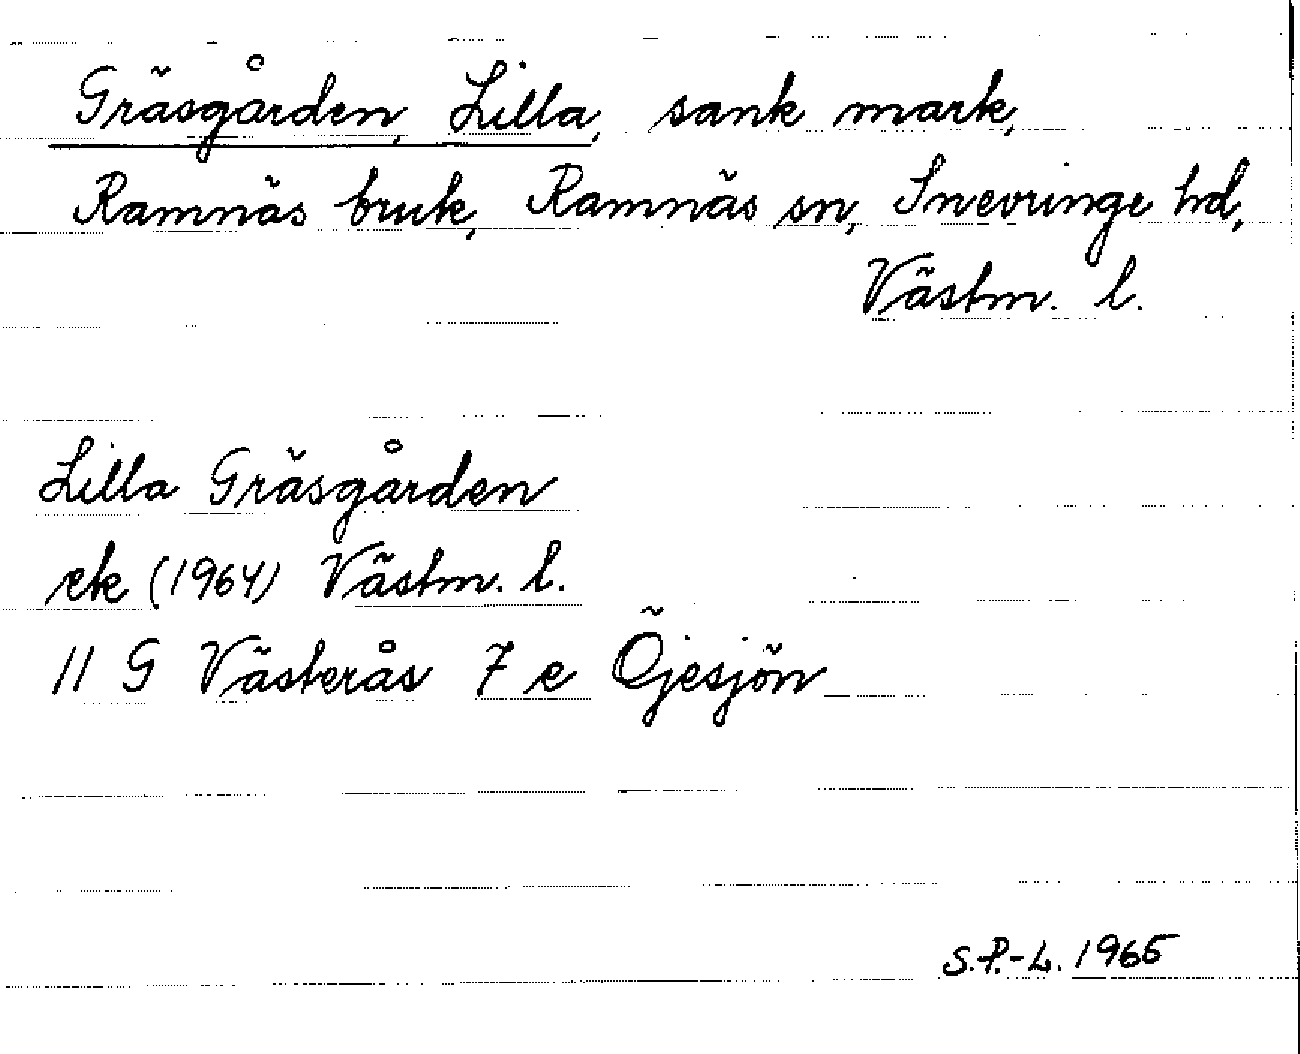 Gräsgården, Lilla, sank mark,
Ramnäs bruk, Ramnäs sn, Snevringe hd,
Västm. l.
Lilla Gräsgården
ek (1964) Västm. l.
11 G Västerås 7 e Öjesjön
S.P.-L. 1965